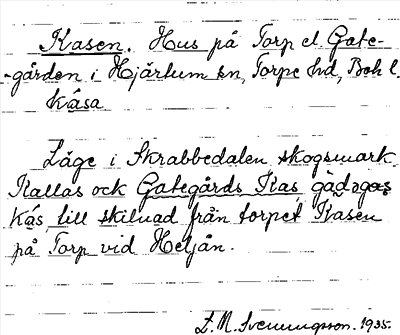 Kasen. Hus på Torp el. Gate-
-gården i Hjärtum sn, Torpe hd, Boh l.
Kåsa
Läge i Skrabbedalen, skogsmark.
Kallas ock Gategårds Kas
Kås till skilnad från torpet Kasen
på Torp vid Heljån.
Svenungsson. 1935.